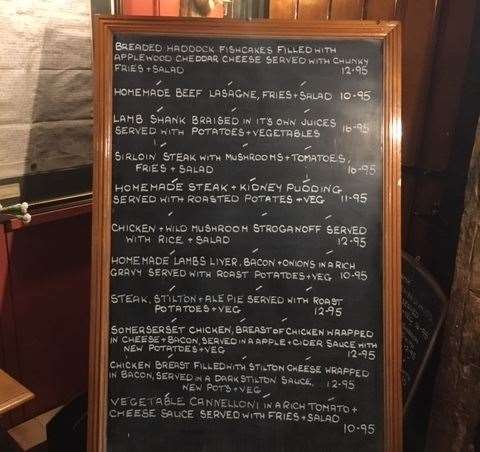 BREADED HADDOCK FISHCAKES FILLED WITH
APPLEWOOD CHEDDAR CHEESE SERVED WITH CHUNKY
FRIES + SALAD 12-95
HOMEMADE BEEF LASAGNE, FRIES + SALAD 10-95
LAMB SHANK BRAISED IN IT'S OWN JUICES
SERVED WITH POTATOES + VEGETABLES 16-95
SIRLOIN STEAK WITH MUSHROOMS + TOMATOES,
FRIES + SALAD 16-95
HOMEMADE STEAK + KIDNEY PUDDING
SERVED WITH ROASTED POTATES + VEG 11-95
CHICKEN + WILD MUSHROOM STROGANOFF SERVED
WITH RICE + SALAD 12-95
HOMEMADE LAMBS LIVER, BACON + ONIONS IN A RICH
GRAVY SERVED WITH ROAST POTATOES + VEG 10-95
STEAK, STILTON + ALE PIE SERVED WITH ROAST
POTATOES + VEG 12-95
SOMERSERSET CHICKEN, BREAST OF CHICKEN WRAPPED
IN CHEESE + BACON, SERVED IN A APPLE + CIDER SAUCE WITH
NEW POTATOES + VEG 12-95
CHICKEN BREAST FILLED WITH STILTON CHEESE WRAPPED
IN BACON, SERVED IN A DARK STILTON SAUCE, 12-95
NEW POTS + VEG
VEGETABLE CANNELLONI IN A RICH TOMATO +
CHEESE SAUCE SERVED WITH FRIES + SALAD
10-95